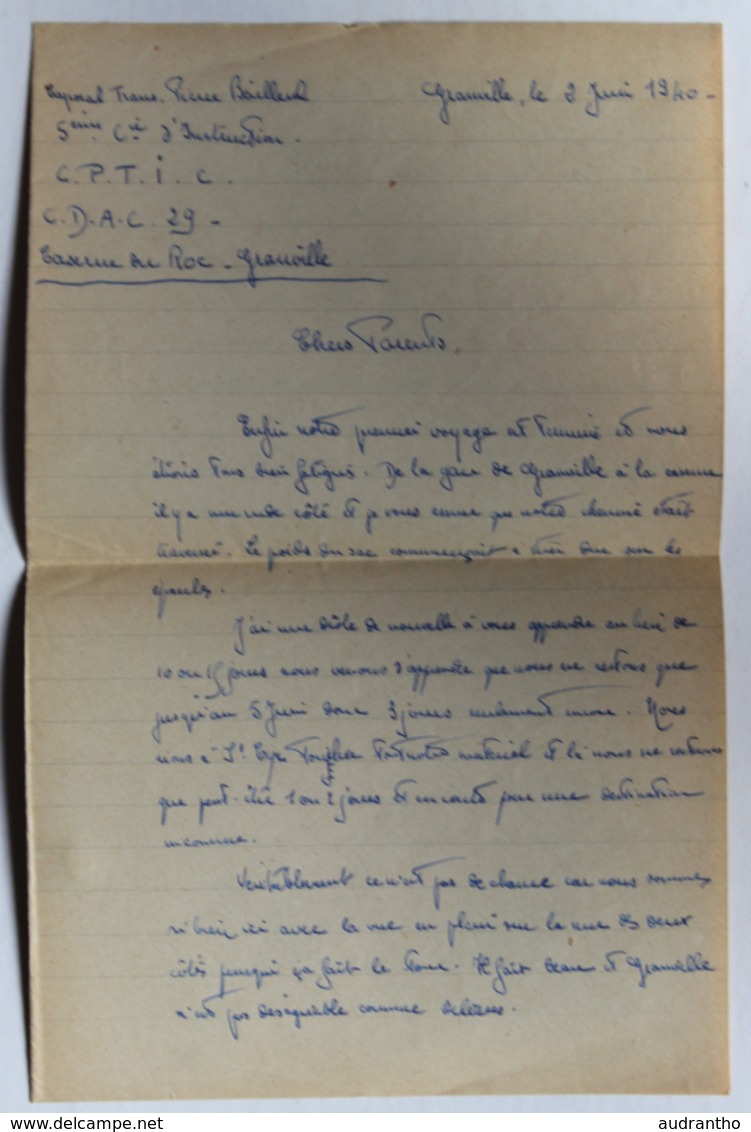 Caporal Trans. Pierre
Granville, le 2 Juin 1940 -
5ème Cie d'Instruction.
C.P.T.I.C.
C.D.A.C. 29 -
Caserne du Roc - Granville
Chers Parents,
Enfin notre premier voyage est terminé et nous
étions tous bien fatigués. De la gare de Granville à la caserne
il y a une rude côte et je vous assure que notre chemise était
traversée. Le poids du sac commençait à tirer dur sur les
épaules.
J'ai une drôle de nouvelle à vous apprendre au lieu de
10 ou 15 jours nous venons d'apprendre que nous ne restons que
jusqu'au 5 Juin donc 3 jours seulement encore. Nous
à St Cyr tout notre matériel et là nous ne resterons
que peut-être 1 ou 2 jours et en route pour une destination
inconnue.
Véritablement ce n'est pas de chance car nous sommes
si bien ici avec la vue en plein sur la mer des deux
côtés puisqu'ça fait le tour. Il fait beau et Granville
n'est pas désagréable comme Orléans.
© delcampe.net
audrantho